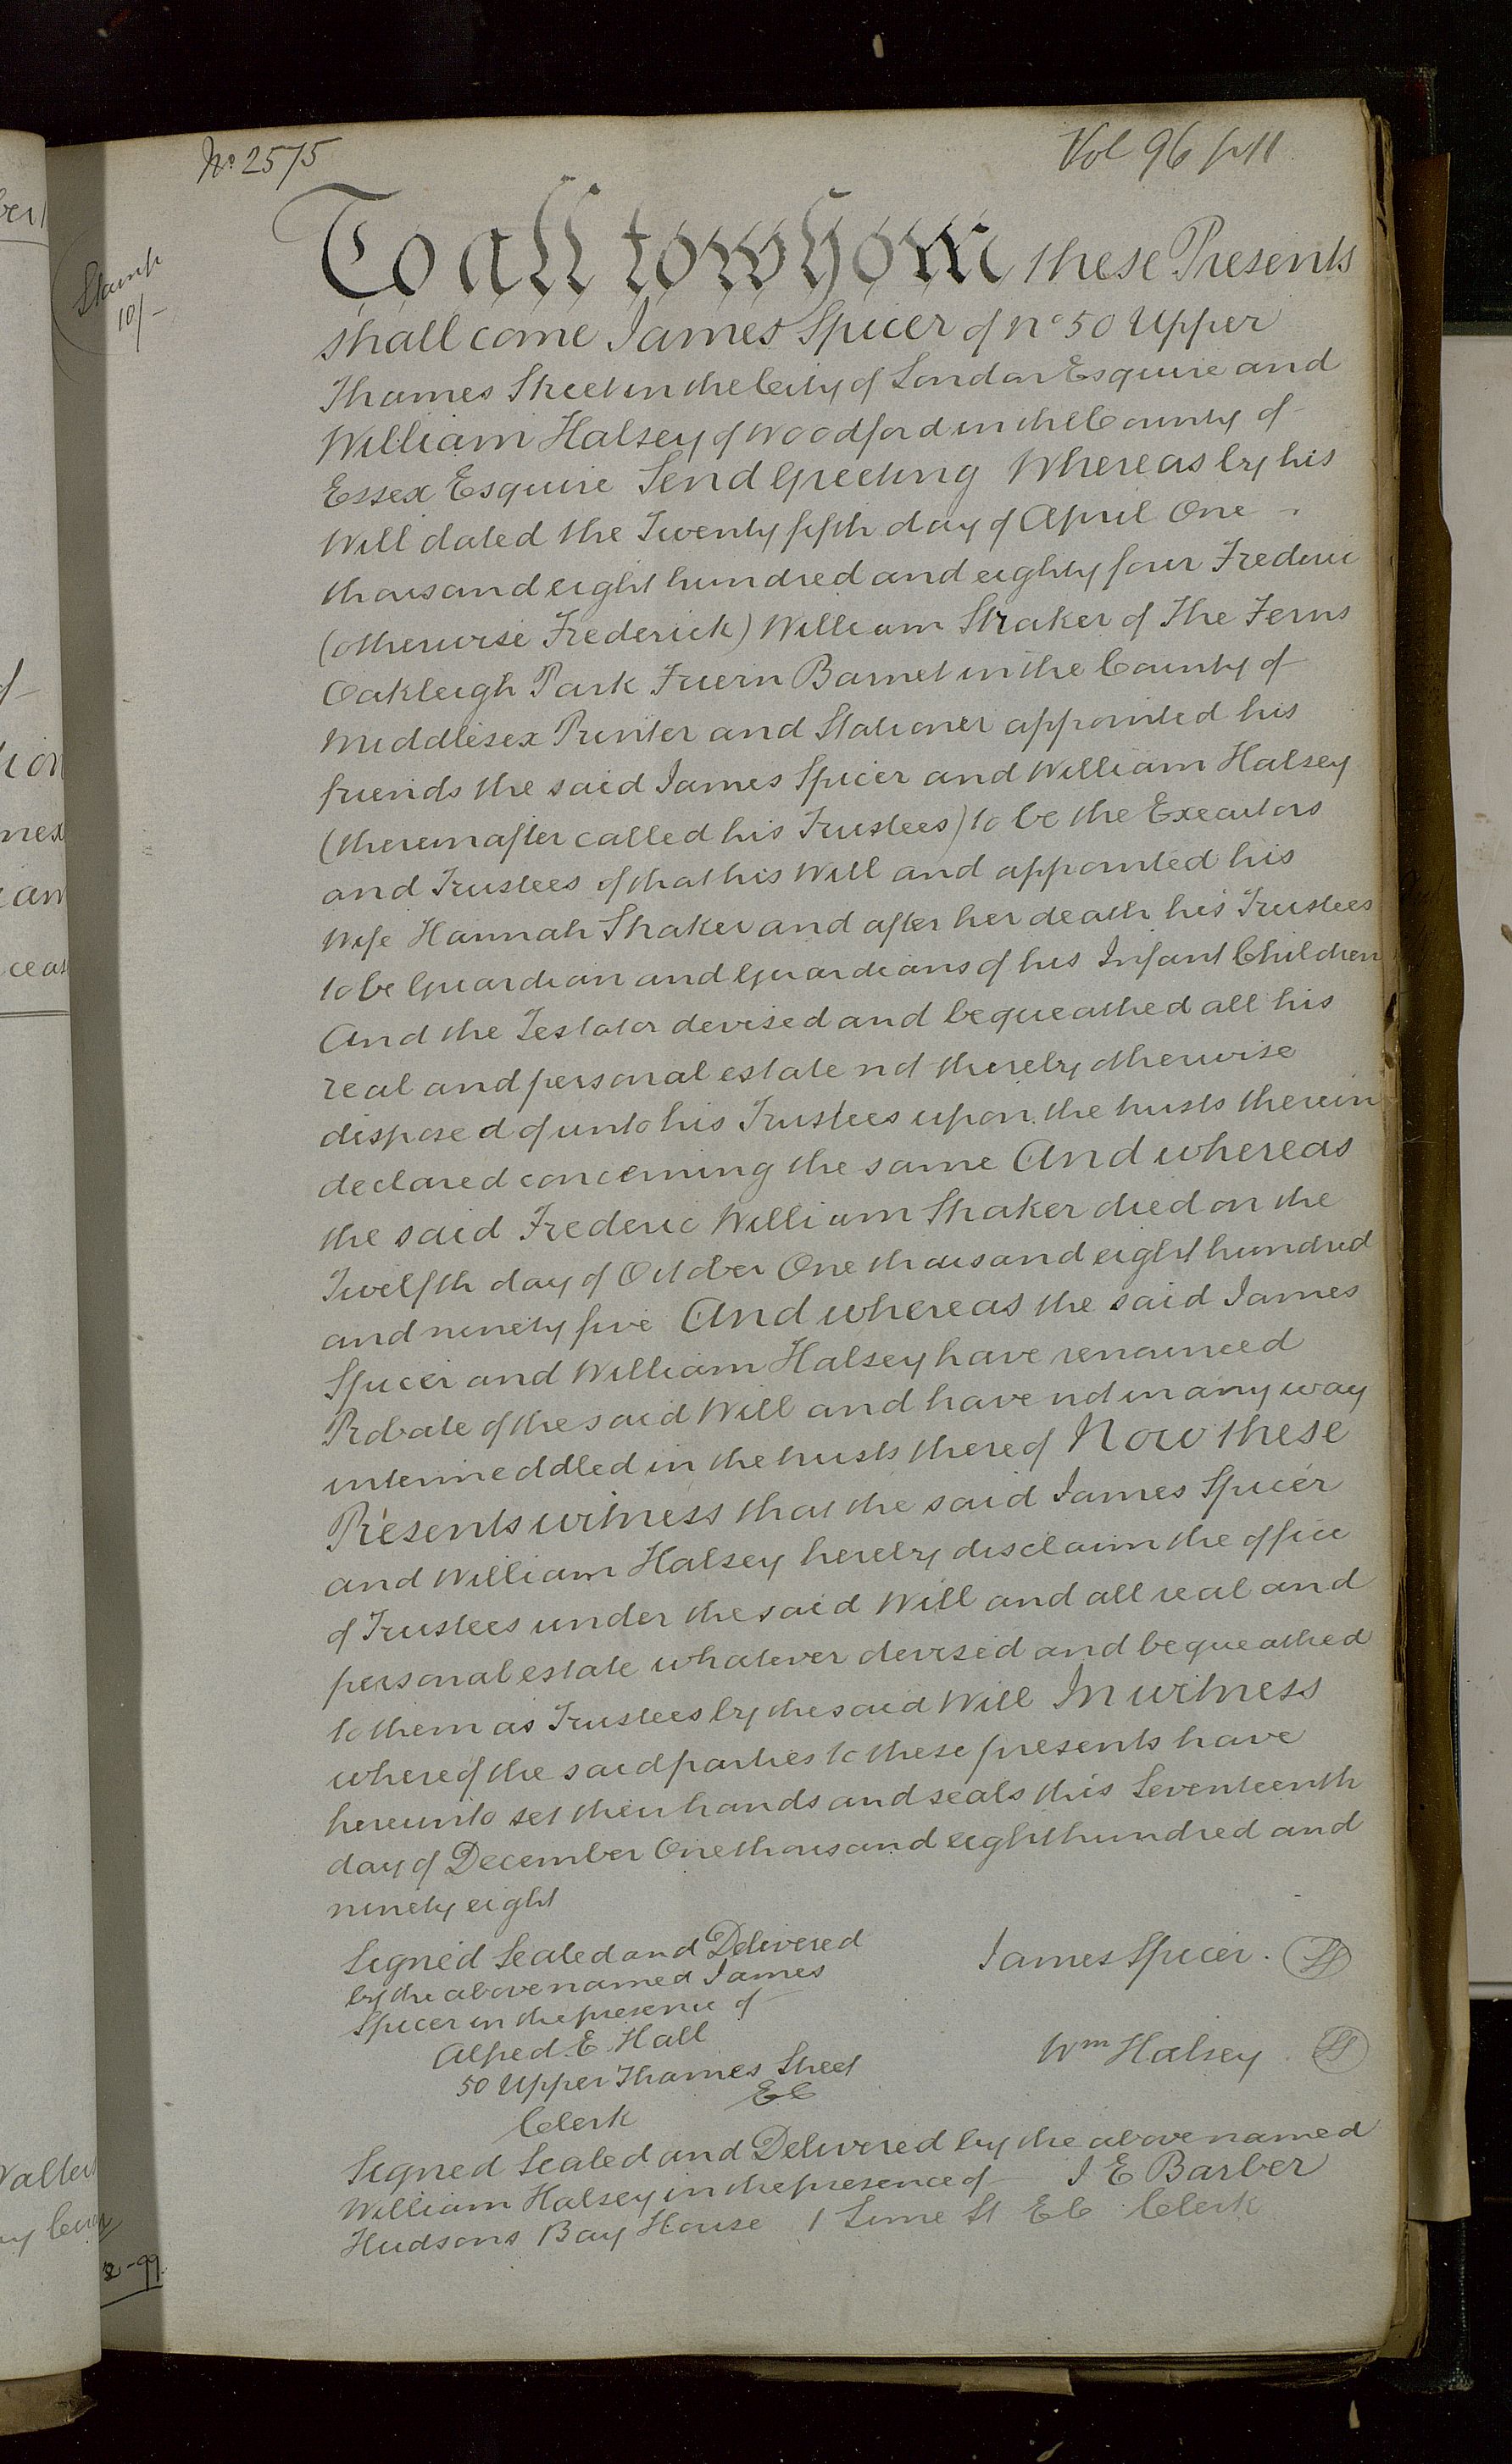 No. 2575
Vol 96 p 11
Stamp
10/-
To all to whom these Presents
shall come James Spicer of No 50 Upper
Thames Street in the City of London Esquire and
William Halsey of Woodford in the County of
Essex Esquire Send Greeting Whereas by his
Will dated the Twenty fifth day of April One
thousand eight hundred and eighty four Frederic
(otherwise Frederick) William Straker of The Ferns
Oakleigh Park Friern Barnet in the County of
Middlesex Printer and Stationer appointed his
friends the said James Spicer and William Halsey
(thereinafter called his Trustees) to be the Executors
and Trustees of that his Will and appointed his
Wife Hannah Straker and after her death his Trustees
to be Guardian and Guardians of his Infant Children
And the Testator devised and bequeathed all his
real and personal estate not thereby otherwise
disposed of unto his Trustees upon the trusts therein
declared concerning the same And whereas
the said Frederic William Straker died on the
Twelfth day of October One thousand eight hundred
and ninety five And whereas the said James
Spicer and William Halsey have renounced
Probate of the said Will and have not in any way
intermeddled in the trusts thereof Now these
Presents witness that the said James Spicer
and William Halsey hereby disclaim the office
of Trustees under the said Will and all real and
personal estate whatever devised and bequeathed
to them as Trustees by the said Will In witness
whereof the said parties to these presents have
hereunto set their hands and seals this Seventeenth
day of December One thousand eight hundred and
ninety eight
Signed Sealed and Delivered
by the above named James
Spicer in the presence of
Alfred E. Hall
50 Upper Thames Street
EC
Clerk
James Spicer. LS
Wm Halsey. LS
Signed Sealed and Delivered by the above named
William Halsey in the presence of J E Barber
Hudsons Bay House 1 Lime St EC Clerk